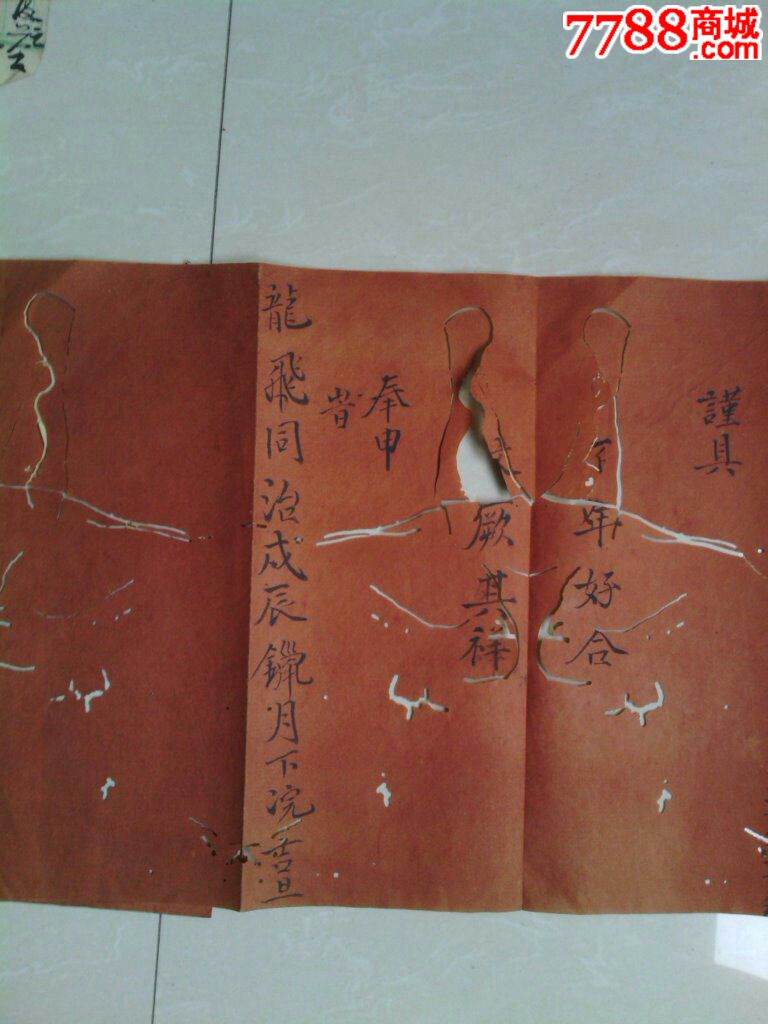 7788商城
.com
謹具
年好合
厥其祥
奉申
龍飛同治戊辰鑞月下浣吉旦